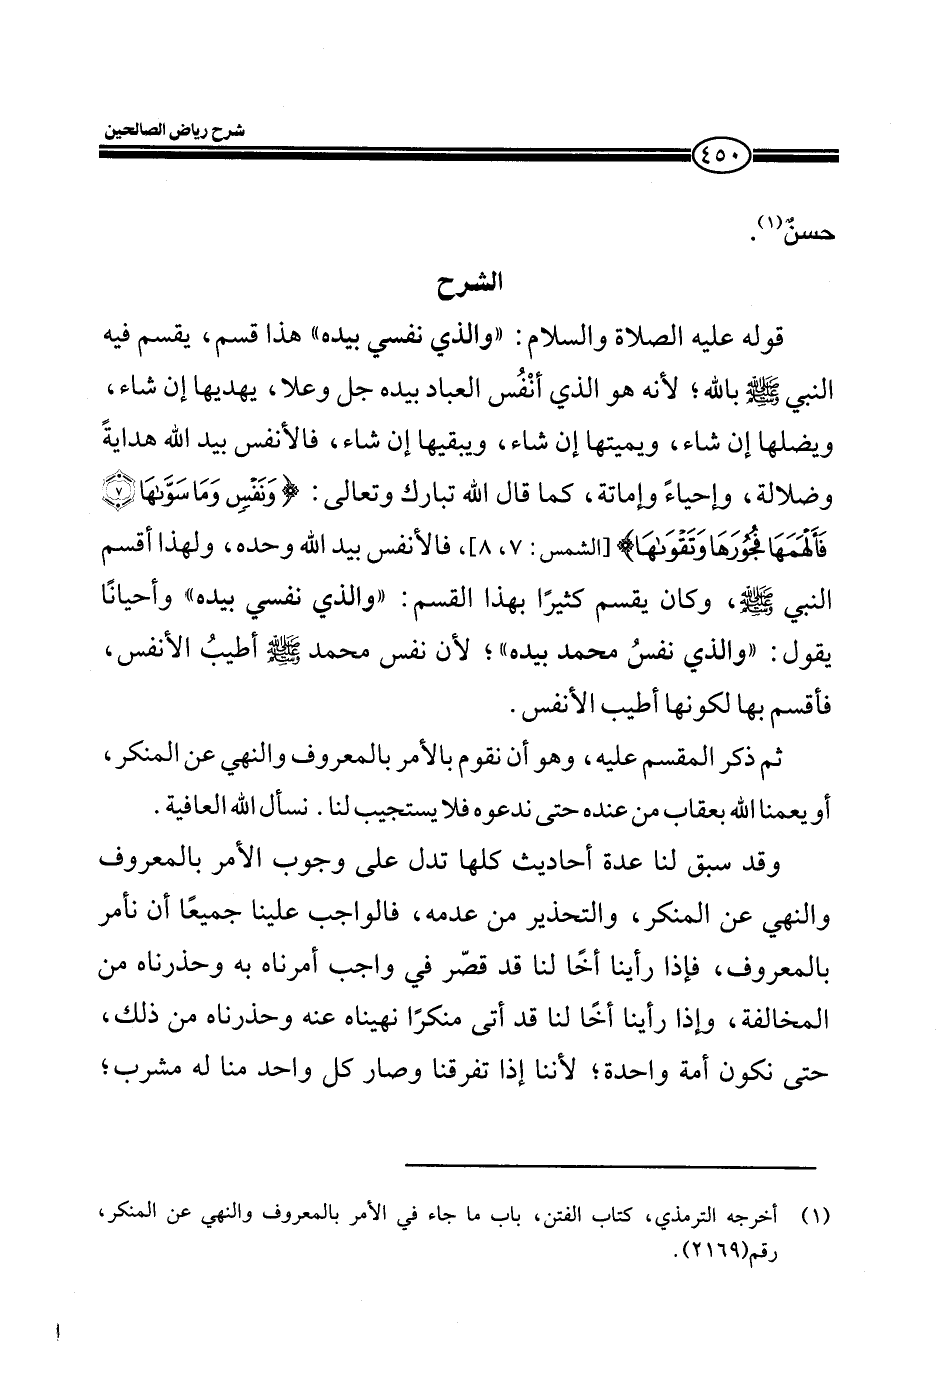 شرح رياض الصالحين
٤٥٠
حسنٌ(١).
الشرح
قوله عليه الصلاة والسلام: «والذي نفسي بيده» هذا قسم، يقسم فيه
النبي ﷺ بالله؛ لأنه هو الذي أنْفُس العباد بيده جل وعلا، يهديها إن شاء،
ويضلها إن شاء، ويميتها إن شاء، ويبقيها إن شاء، فالأنفس بيد الله هدايةً
وضلالة، وإحياءً وإماتة، كما قال الله تبارك وتعالى: ﴿وَنَفْسٍ وَمَا سَوَّىٰهَا ٧
فَأَلْهَمَهَا فُجُورَهَا وَتَقْوَىٰهَا﴾ [الشمس: ٧، ٨]، فالأنفس بيد الله وحده، ولهذا أقسم
النبي ﷺ، وكان يقسم كثيرًا بهذا القسم: «والذي نفسي بيده» وأحيانًا
يقول: «والذي نفسُ محمد بيده»؛ لأن نفس محمد ﷺ أطيبُ الأنفس،
فأقسم بها لكونها أطيب الأنفس.
ثم ذكر المقسم عليه، وهو أن نقوم بالأمر بالمعروف والنهي عن المنكر،
أو يعمنا الله بعقاب من عنده حتى ندعوه فلا يستجيب لنا. نسأل الله العافية.
وقد سبق لنا عدة أحاديث كلها تدل على وجوب الأمر بالمعروف
والنهي عن المنكر، والتحذير من عدمه، فالواجب علينا جميعًا أن نأمر
بالمعروف، فإذا رأينا أخًا لنا قد قصّر في واجب أمرناه به وحذرناه من
المخالفة، وإذا رأينا أخًا لنا قد أتى منكرًا نهيناه عنه وحذرناه من ذلك،
حتى نكون أمة واحدة؛ لأننا إذا تفرقنا وصار كل واحد منا له مشرب؛
(١) أخرجه الترمذي، كتاب الفتن، باب ما جاء في الأمر بالمعروف والنهي عن المنكر،
رقم(٢١٦٩).